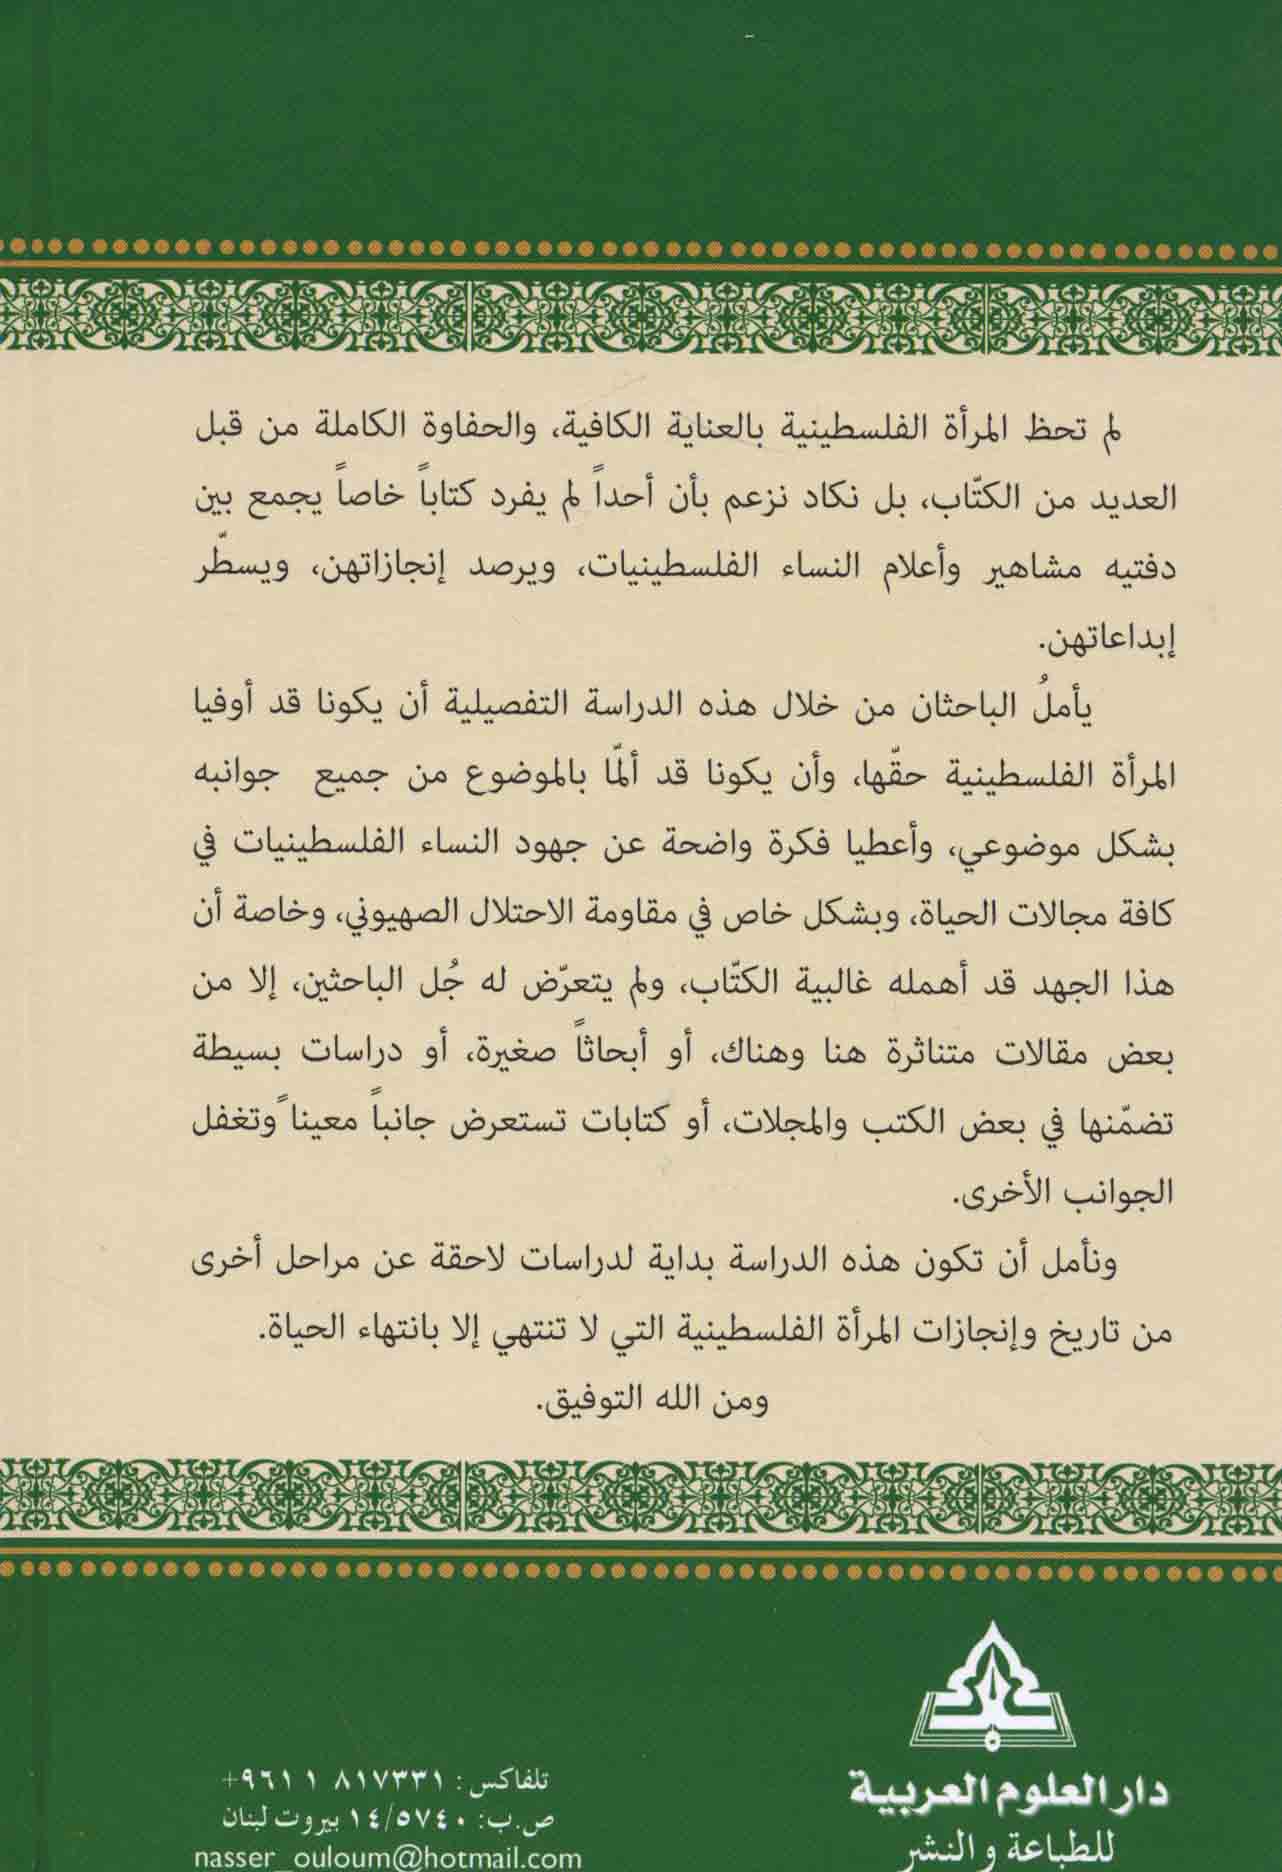 لم تحظ المرأة الفلسطينية بالعناية الكافية، والحفاوة الكاملة من قبل
العديد من الكتّاب، بل نكاد نزعم بأن أحداً لم يفرد كتاباً خاصاً يجمع بين
دفتيه مشاهير وأعلام النساء الفلسطينيات، ويرصد إنجازاتهن، ويسطّر
إبداعاتهن.
يأملُ الباحثان من خلال هذه الدراسة التفصيلية أن يكونا قد أوفيا
المرأة الفلسطينية حقّها، وأن يكونا قد ألمّا بالموضوع من جميع جوانبه
بشكل موضوعي، وأعطيا فكرة واضحة عن جهود النساء الفلسطينيات في
كافة مجالات الحياة، وبشكل خاص في مقاومة الاحتلال الصهيوني، وخاصة أن
هذا الجهد قد أهمله غالبية الكتّاب، ولم يتعرّض له جُل الباحثين، إلا من
بعض مقالات متناثرة هنا وهناك، أو أبحاثاً صغيرة، أو دراسات بسيطة
تضمّنها في بعض الكتب والمجلات، أو كتابات تستعرض جانباً معيناً وتغفل
الجوانب الأخرى.
ونأمل أن تكون هذه الدراسة بداية لدراسات لاحقة عن مراحل أخرى
من تاريخ وإنجازات المرأة الفلسطينية التي لا تنتهي إلا بانتهاء الحياة.
ومن الله التوفيق.
دار العلوم العربية
للطباعة والنشر
تلفاكس: ٨١٧٣٣١ ١ ٩٦١+
ص.ب: ١٤/٥٧٤٠ بيروت لبنان
nasser_ouloum@hotmail.com